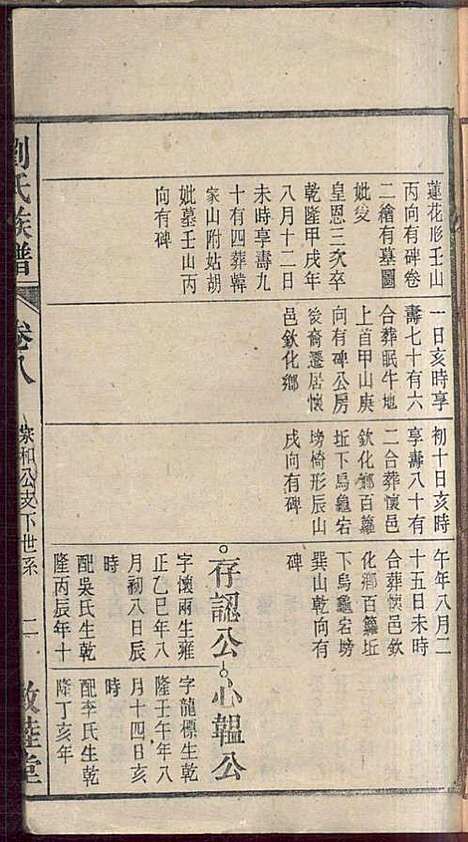 蓮花形壬山
丙向有碑卷
二繪有墓圖
妣夋
皇恩三次卒
乾隆甲戌年
八月十二日
未時享壽九
十有四葬韓
家山附姑胡
妣墓壬山丙
向有碑
一日亥時享
壽七十有六
合葬眠牛地
上首甲山庚
向有碑公房
後裔遷居懷
邑欽化鄉
初十日亥時
享壽八十有
二合葬懷邑
欽化鄉百籮
坵下烏龜宕
塝椅形辰山
戌向有碑
午年八月二
十五日未時
合葬懷邑欽
化鄉百籮坵
下烏龜宕塝
巽山乾向有
碑
存認公
字懷兩生雍
正乙巳年八
月初八日辰
時
配吳氏生乾
隆丙辰年十
心韞公
字龍標生乾
隆壬午年八
月十四日亥
時
配李氏生乾
隆丁亥年
劉氏族譜
卷八
宗和公支下世系
二
敦睦堂